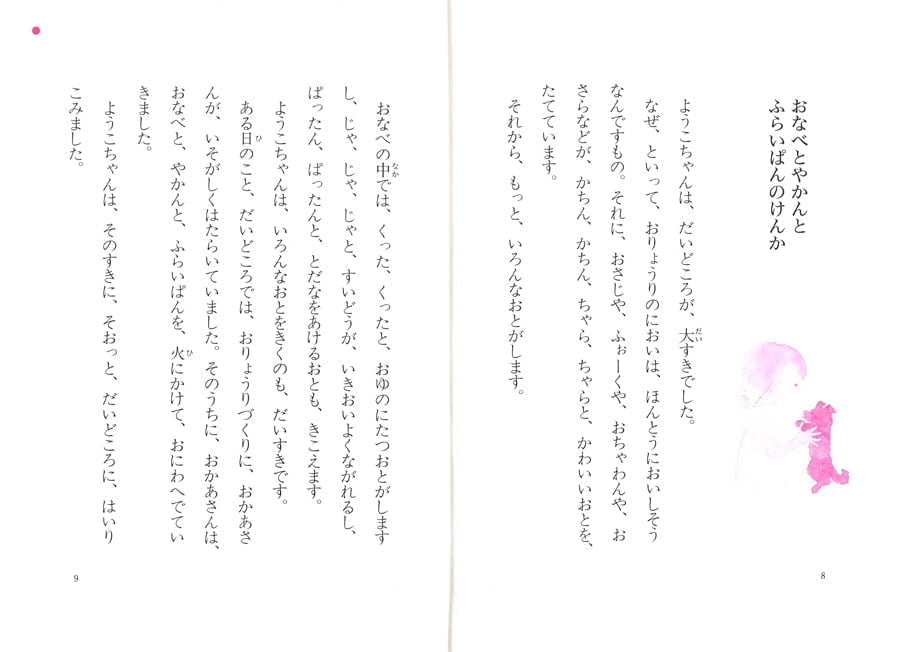 おなべとやかんと
ふらいぱんのけんか
ようこちゃんは、だいどころが、大すきでした。
なぜ、といって、おりょうりのにおいは、ほんとうにおいしそう
なんですもの。それに、おさじや、ふぉーくや、おちゃわんや、お
さらなどが、かちん、かちん、ちゃら、ちゃらと、かわいいおとを、
たてています。
それから、もっと、いろんなおとがします。
8
おなべの中では、くった、くったと、おゆのにたつおとがします
し、じゃ、じゃ、じゃと、すいどうが、いきおいよくながれるし、
ぱったん、ぱったんと、とだなをあけるおとも、きこえます。
ようこちゃんは、いろんなおとをきくのも、だいすきです。
ある日のこと、だいどころでは、おりょうりづくりに、おかあさ
んが、いそがしくはたらいていました。そのうちに、おかあさんは、
おなべと、やかんと、ふらいぱんを、火にかけて、おにわへでてい
きました。
ようこちゃんは、そのすきに、そおっと、だいどころに、はいり
こみました。
9